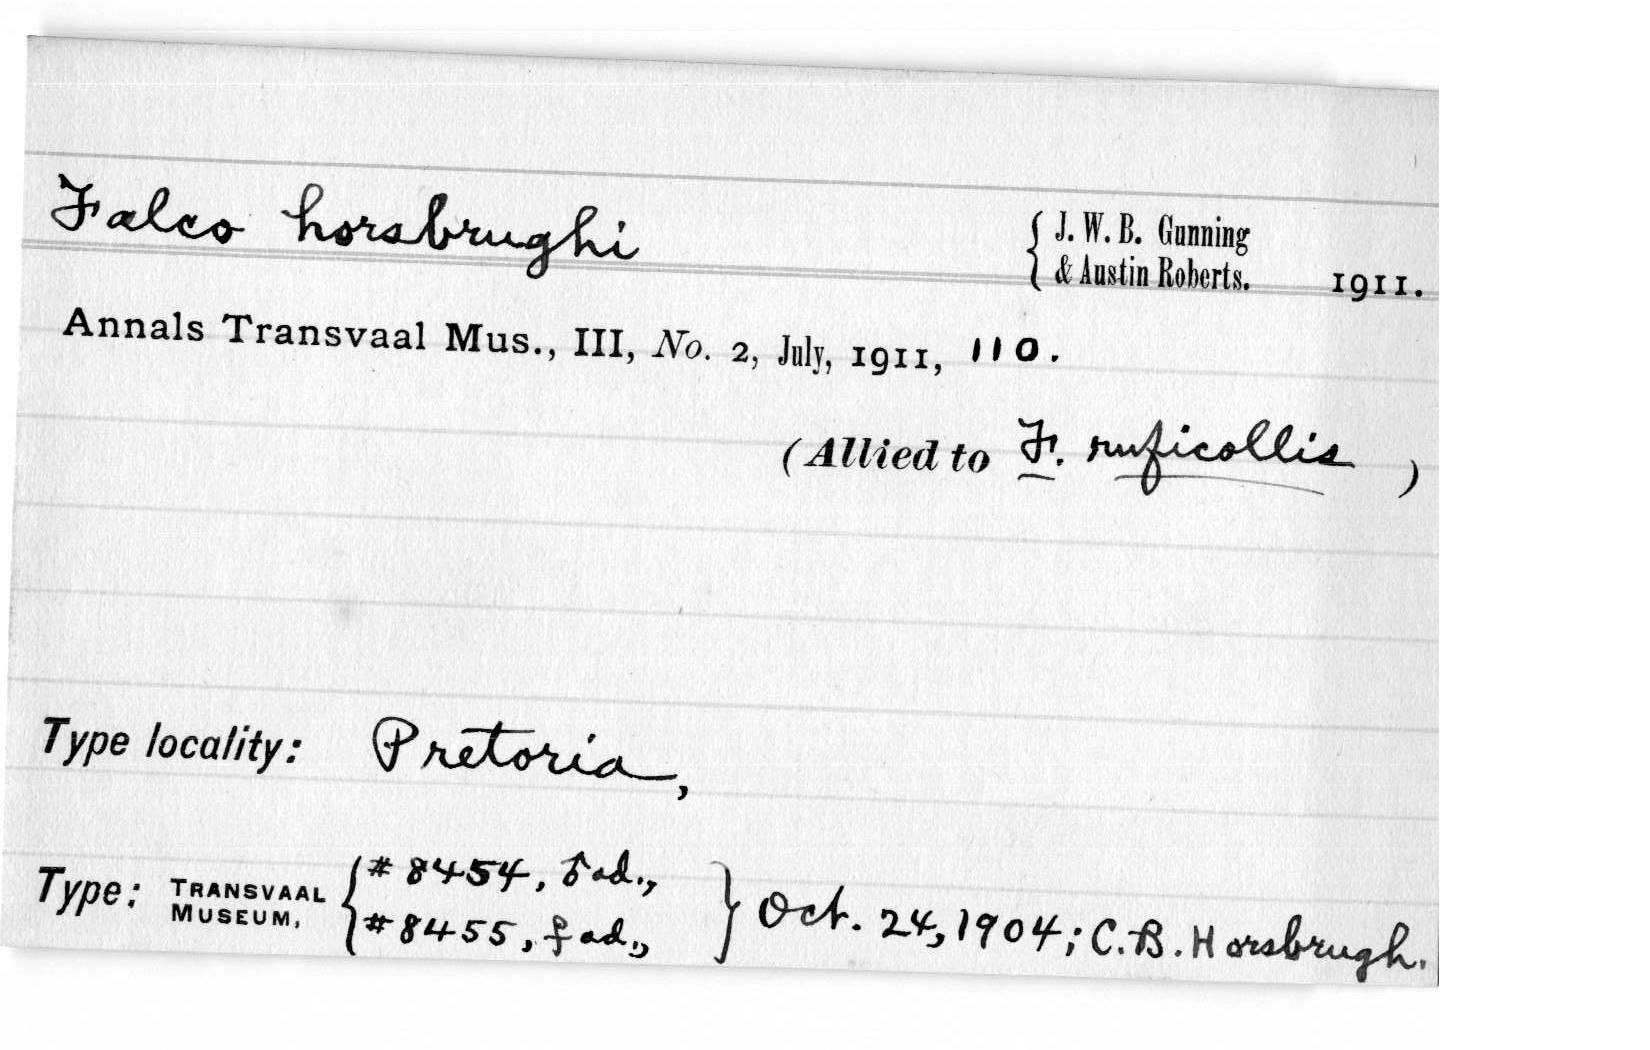 Falco horsbrughi { J. W. B. Gunning & Austin Roberts. 1911.
Annals Transvaal Mus., III, No. 2, July, 1911, 110.
(Allied to F. ruficollis )
Type locality: Pretoria,
Type: TRANSVAAL MUSEUM, { # 8454, ♂ ad.,
# 8455, ♀ ad., } Oct. 24, 1904; C. B. Horsbrugh.